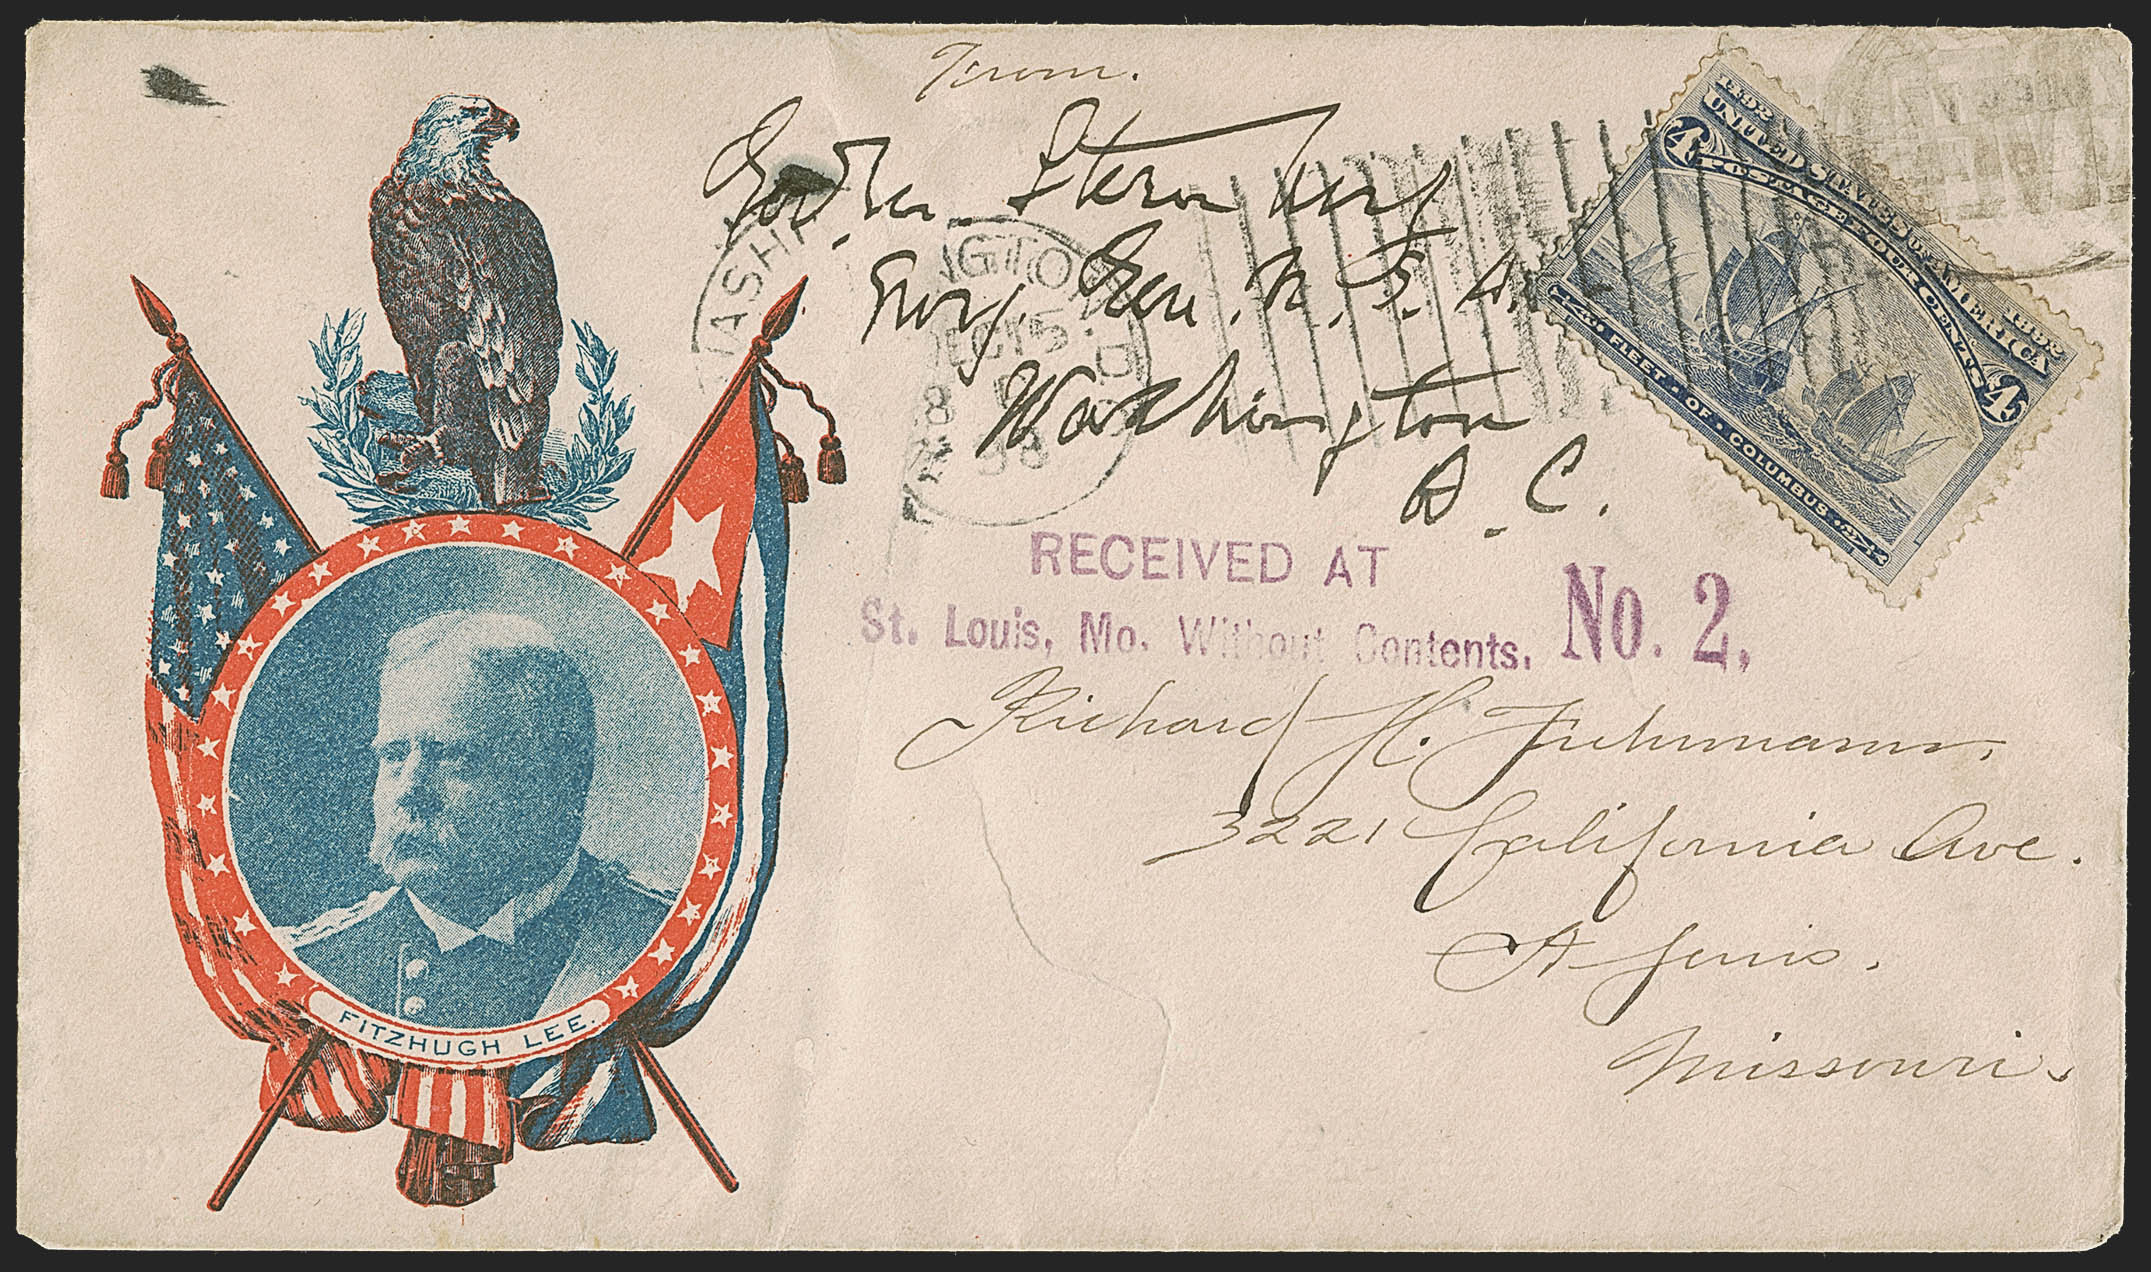 From.
Geo. M. Sternberg
Surg. Gen. U. S. A.
Washington
D. C.
WASHINGTON D.C.
DEC 15
98
1492 1892
UNITED STATES OF AMERICA
POSTAGE FOUR CENTS
4 4
FLEET OF COLUMBUS
RECEIVED AT
St. Louis, Mo. Without Contents. No. 2,
Richard H. Fuhrmann,
3221 California Ave.
St Louis.
Missouri.
FITZHUGH LEE.